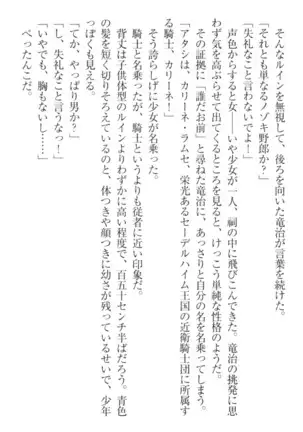 そんなルインを無視して、後ろを向いた竜治が言葉を続けた。
「それとも単なるノゾキ野郎か？」
「失礼なこと言わないでよ！」
声色からすると女――いや少女が一人、祠の中に飛びこんできた。竜治の挑発に思
わず気を高ぶらせて出てくるところを見ると、けっこう単純な性格のようだ。
その証拠に「誰だお前」と尋ねた竜治に、あっさりと自分の名を名乗ってしまう。
「アタシは、カリーネ・ラムセ、栄光あるセーデルハイム王国の近衛騎士団に所属す
る騎士、カリーネ！」
そう誇らしげに少女が名乗った。
騎士と名乗ったが、騎士というよりも従者に近い印象だ。
背丈は子供体型のルインよりわずかに高い程度で、百五十センチ半ばだろう。青色
の髪を短く切りそろえているのと、体つきや顔つきに幼さが残っているせいで、少年
っぽくも見える。
「てか、やっぱり男か？」
「し、失礼なこと言うなっ！」
「いやでも、胸もないし……」
「ぺったんこだ。